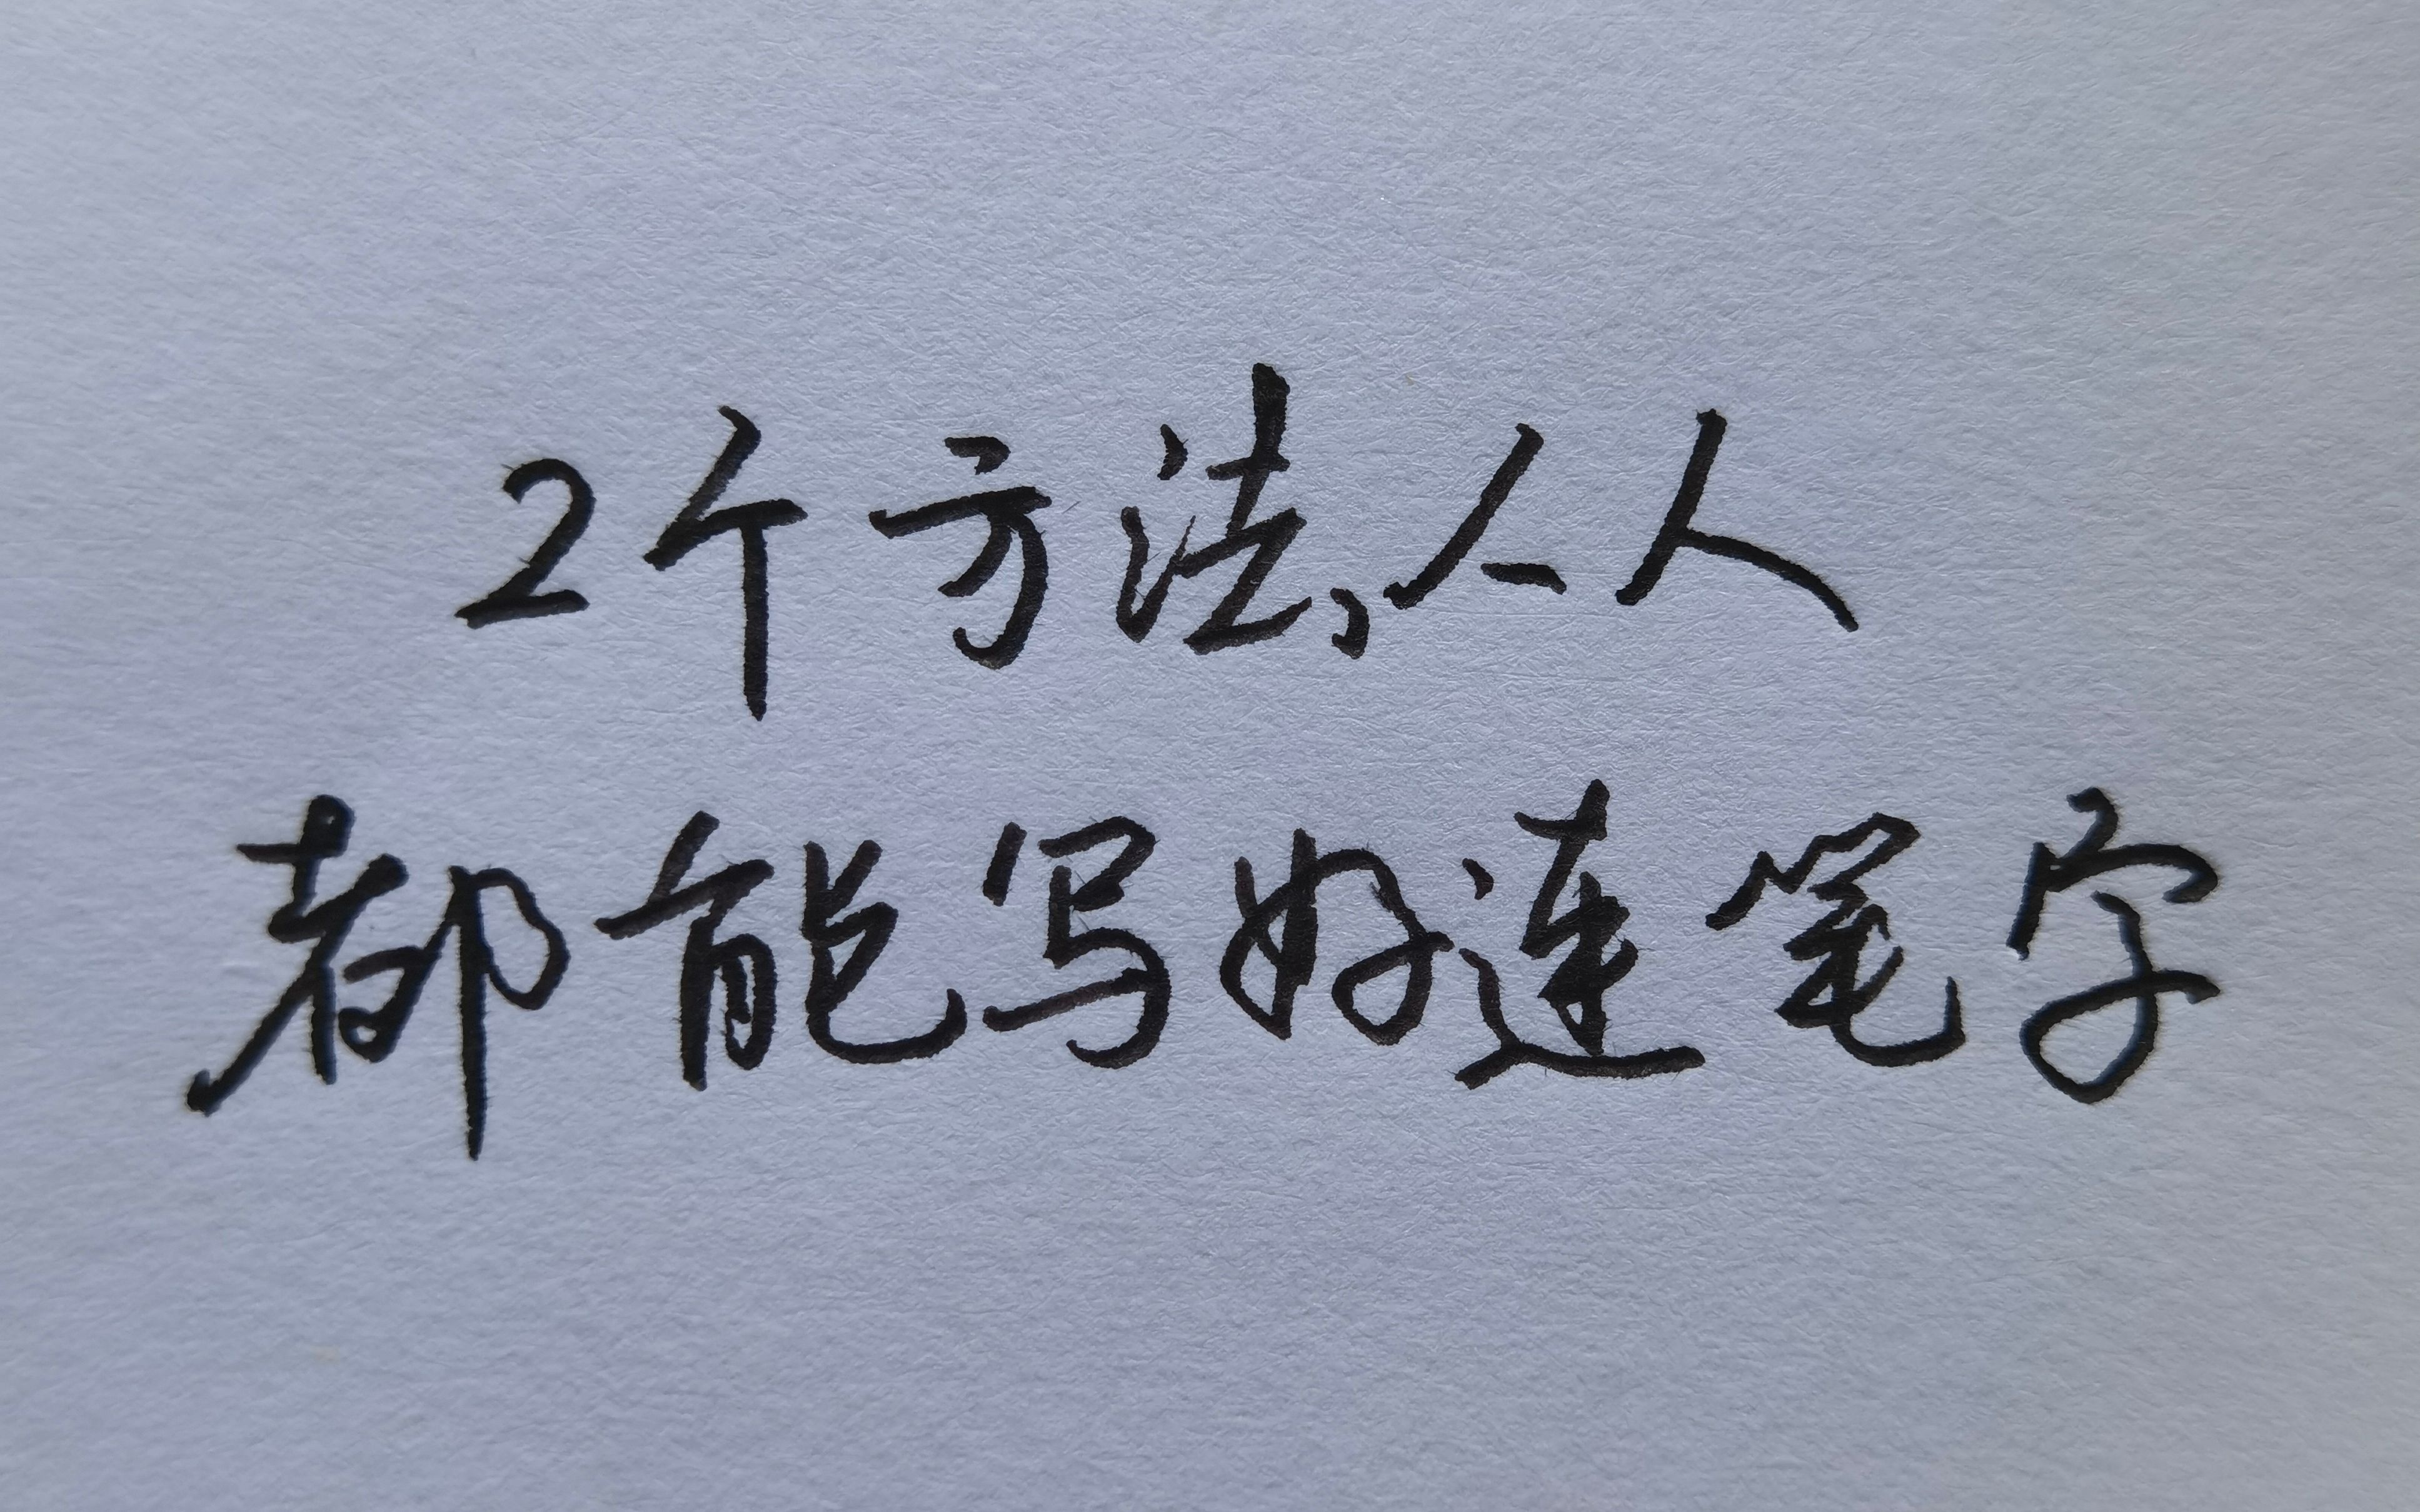 2个方法,人人
都能写好连笔字